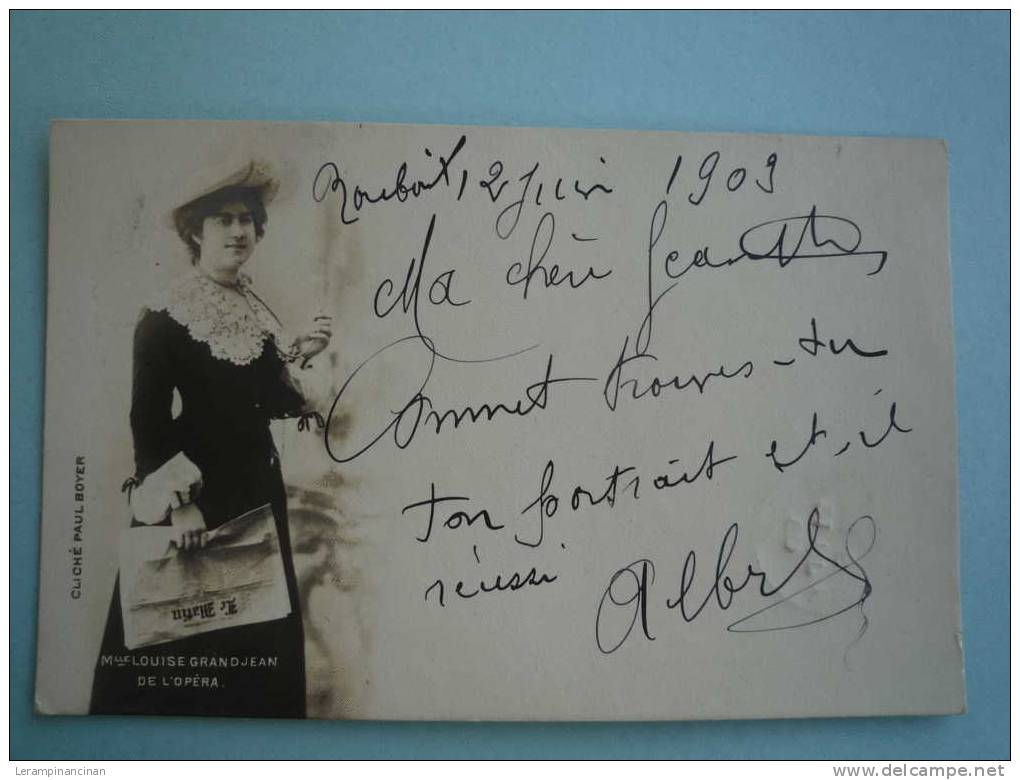 12 Juin 1903
Ma chère
Comment trouves-tu
ton portrait et-il
réussi
Albert
CLICHÉ PAUL BOYER
Le Matin
Mlle LOUISE GRANDJEAN
DE L'OPÉRA.
Lerampinancinan
delcampe.net